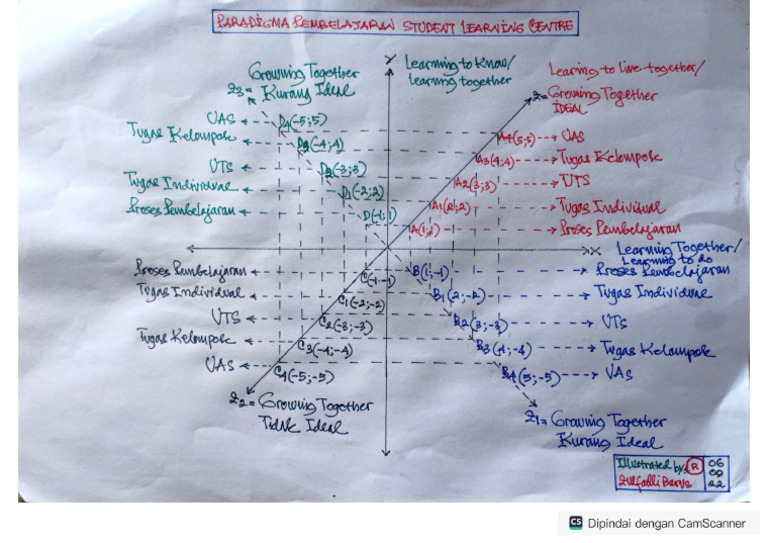 PARADIGMA PEMBELAJARAN STUDENT LEARNING CENTRE
Y
Learning to Know/
learning together
Growing Together
Z3= Kurang Ideal
Learning to live together/
Z= Growing Together
IDEAL
UAS D4(-5;5)
Tugas Kelompok D3(-4;4)
UTS D2(-3;3)
Tugas Individual D1(-2;2)
Proses Pembelajaran D(-1;1)
A4(5;5) UAS
A3(4;4) Tugas Kelompok
A2(3;3) UTS
A1(2;2) Tugas Individual
A(1;1) Proses Pembelajaran
X Learning Together/
Learning to do
Proses Pembelajaran C(-1;-1)
Tugas Individual C1(-2;-2)
UTS C2(-3;-3)
Tugas Kelompok C3(-4;-4)
UAS C4(-5;-5)
B(1;-1) Proses Pembelajaran
B1(2;-2) Tugas Individual
B2(3;-3) UTS
B3(4;-4) Tugas Kelompok
B4(5;-5) UAS
Z2= Growing Together
Tidak Ideal
Z1= Growing Together
Kurang Ideal
Illustrated by: R 06
Zulfadli Barus 09
22
CS Dipindai dengan CamScanner